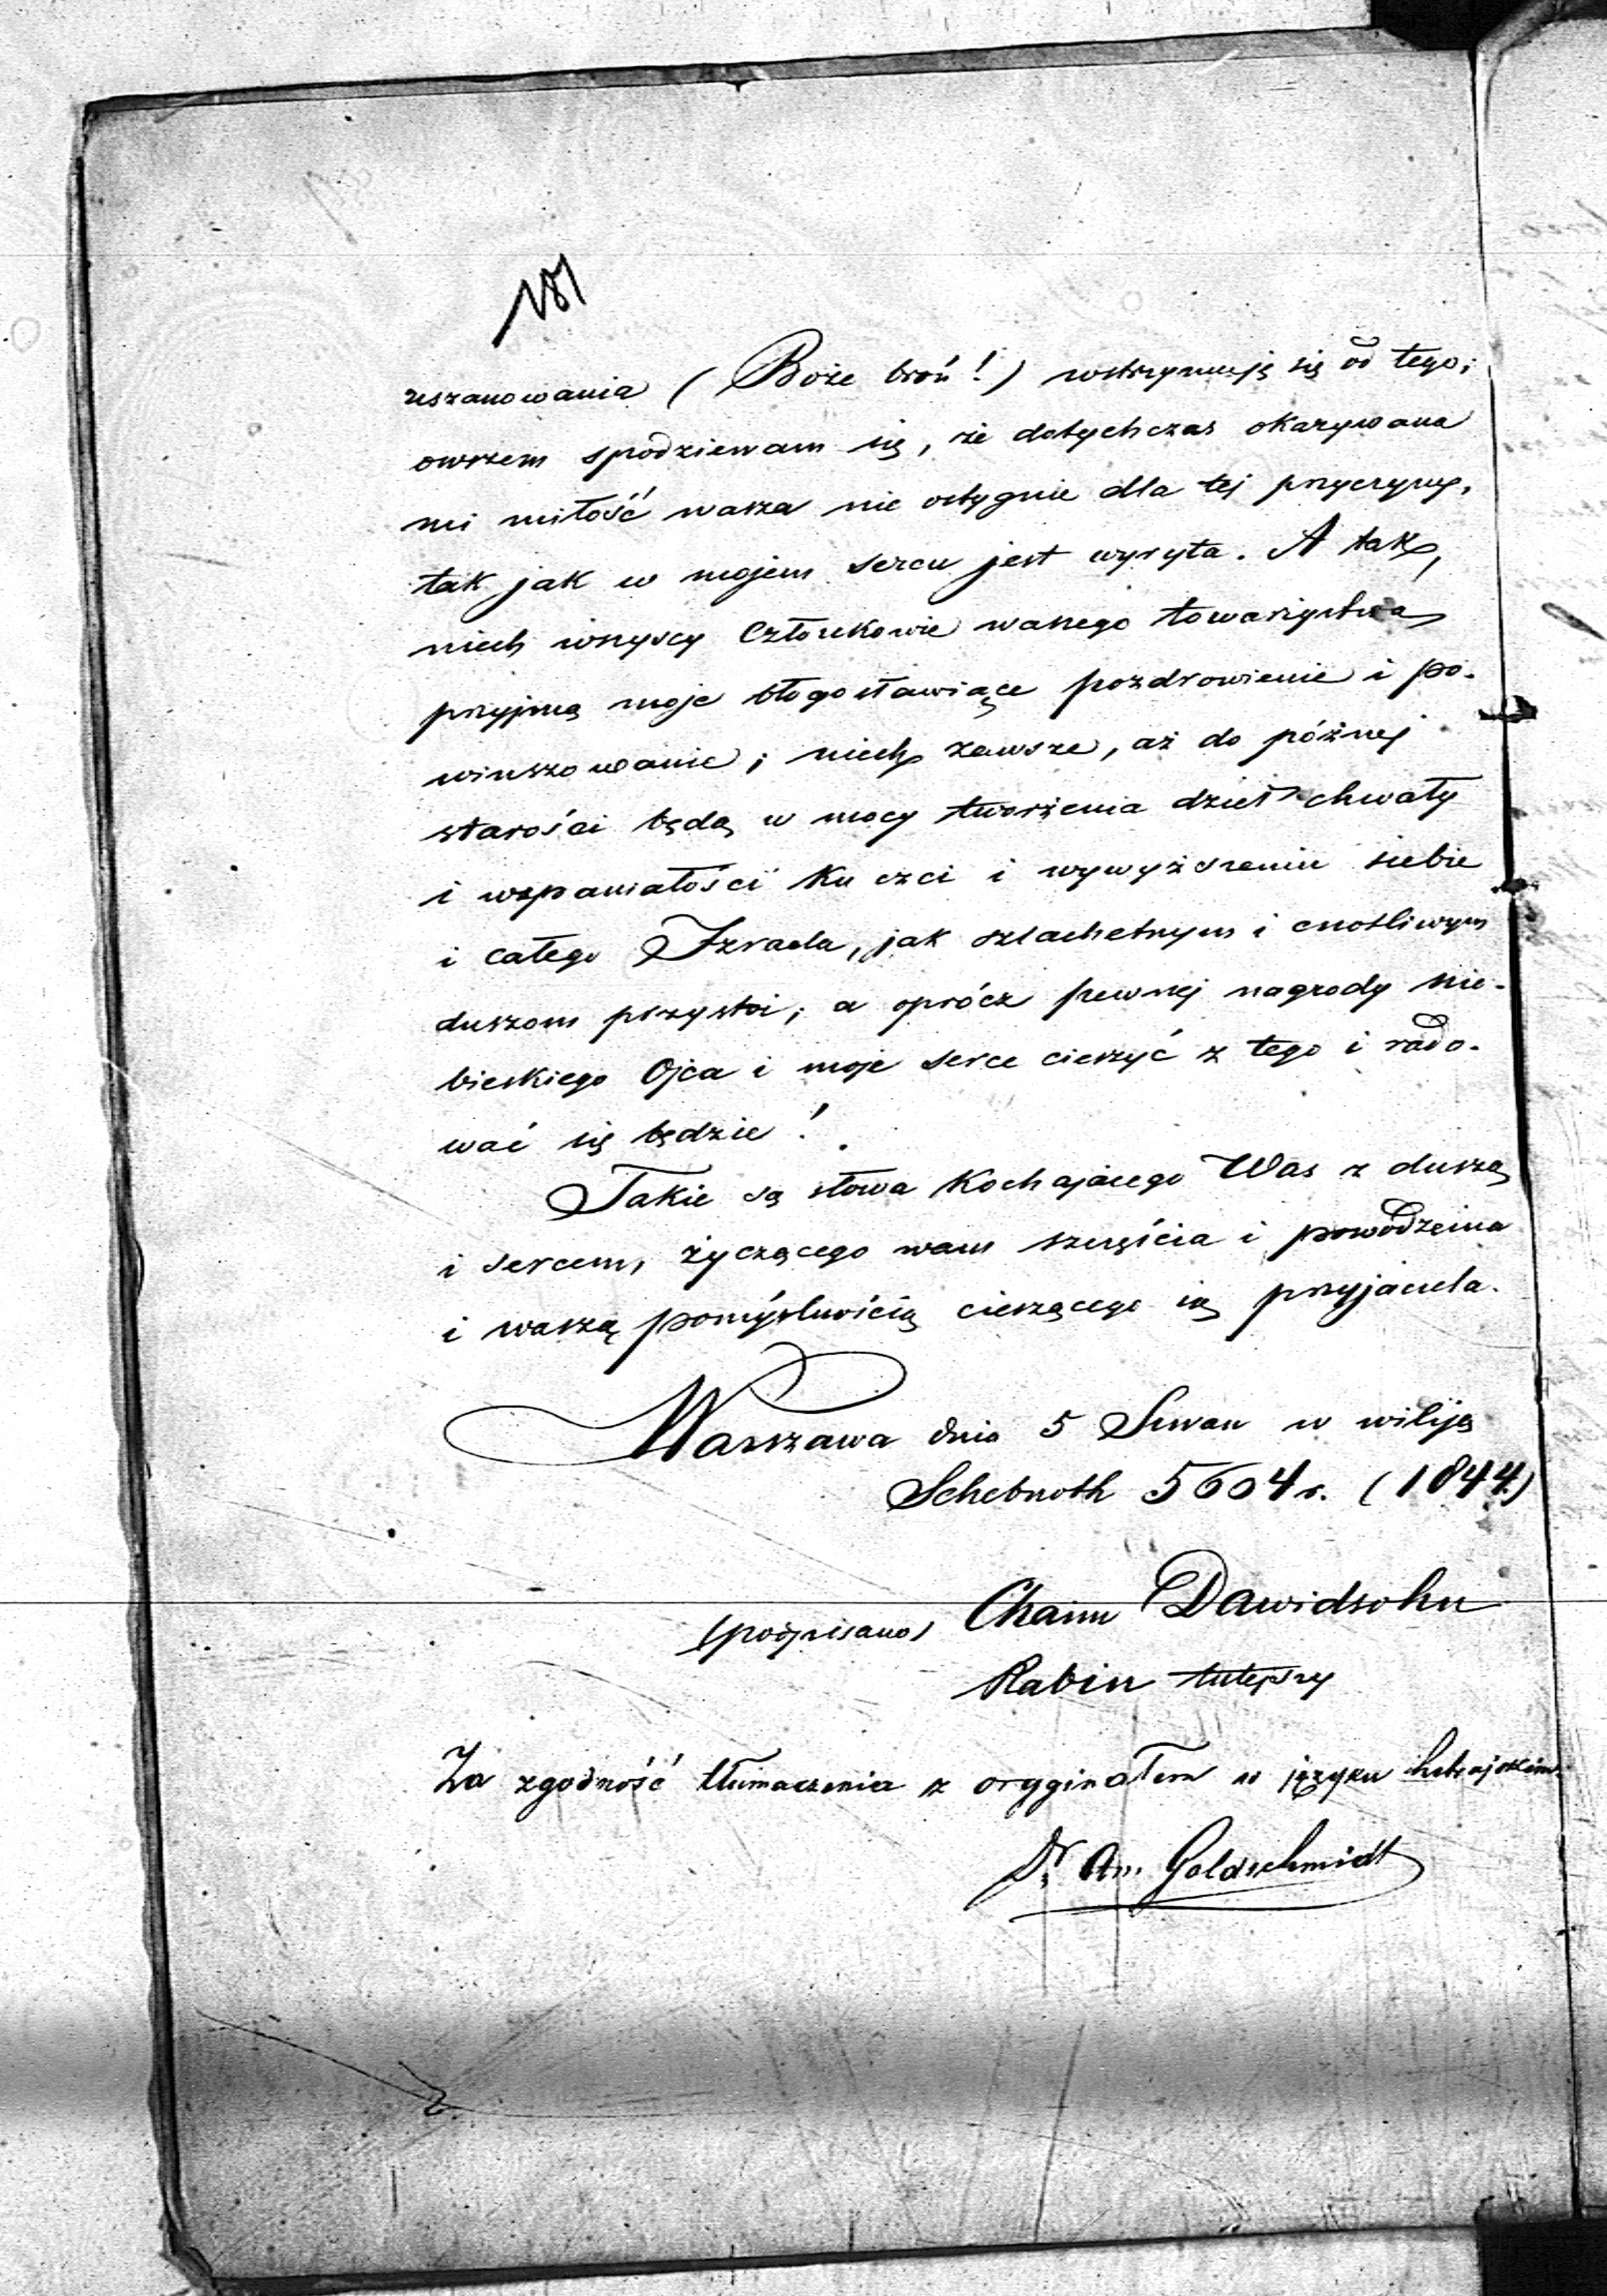 181
uszanowania (Boże broń!) wstrzymuję się od tego;
owszem spodziewam się, że dotychczas okazywana
mi miłość wasza nie ostygnie dla tej przyczyny,
tak jak w mojem sercu jest wyryta. A tak,
niech wszyscy Członkowie waszego towarzystwa
przyjmą moje błogosławiące pozdrowienie i po-
winszowanie; niech zawsze, aż do późnej
starości będą w mocy tworzenia dzieł chwały
i wspaniałości ku czci i wywyższeniu siebie
i całego Izraela, jak szlachetnym i cnotliwym
duszom przystoi; a oprócz pewnej nagrody nie-
bieskiego Ojca i moje serce cieszyć z tego i rado-
wać się będzie!
Takie są słowa Kochającego Was z duszą
i sercem, życzącego wam szczęścia i powodzenia
i waszą pomyślnością cieszącego się przyjaciela.
Warszawa dnia 5 Siwan w wiliję
Schebuoth 5604 r. (1844.)
(podpisano) Chaim Dawidsohn
Rabin tutejszy
Za zgodność tłumaczenia z oryginałem w języku hebrajskim.
Dr. Am. Goldschmidt